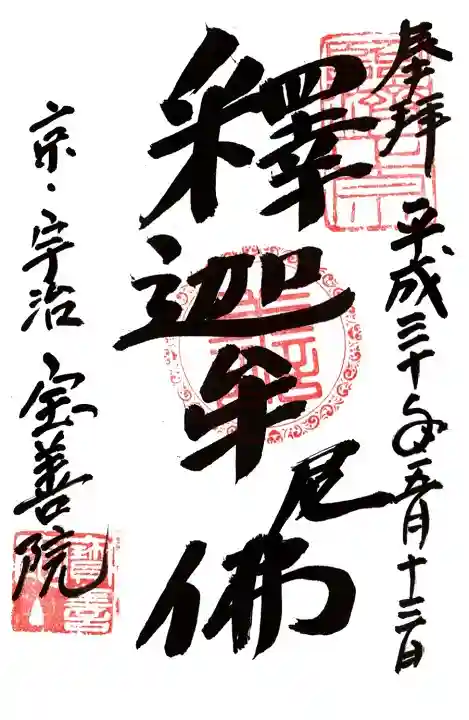 奉拝
平成三十年五月十三日
釋迦牟尼佛
京・宇治 宝善院